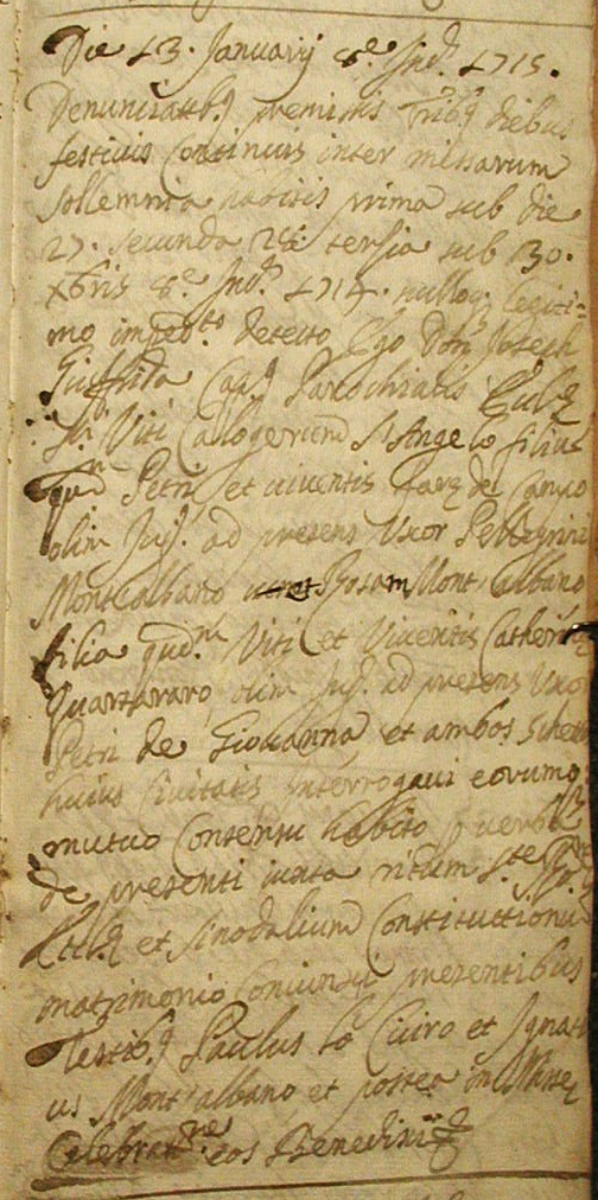 Die 13. Januarij 8.e Ind. 1715.
Denunciatb9 premissis tribq diebus
festivis Continuis inter missarum
sollemnia habitis prima sub die
27. secunda 28. tersia sub 30.
Xbris 8.e Ind. 1714. nulloq. legiti-
mo imped.to detecto Ego D. Joseph
Giuffrida Cap. Parochialis Eccl.
S.ti Viti Calogerum S. Angelo filius
qud.m Petri et viventis de Campo
olim Jug. ad presens Uxor Pellegrini
Montealbano et Rosam Mont'albano
filia qud.m Viti et Viventis Catherin
Quartararo, olim Jug. ad presens Uxor
Petri de Giovanna, et ambos
huius Civitatis Interrogavi eorumq
mutuo Consensu habito p verba
de presenti iuxta ritum S.te Ro.
Eccl. et Sinodalium Constituttionu
matrimonio Coniunxi presentibus
Testibq Paulus lo Civiro et Ignati
us Mont'albano et postea in Misse
Celebrat.ne eos Benedixi